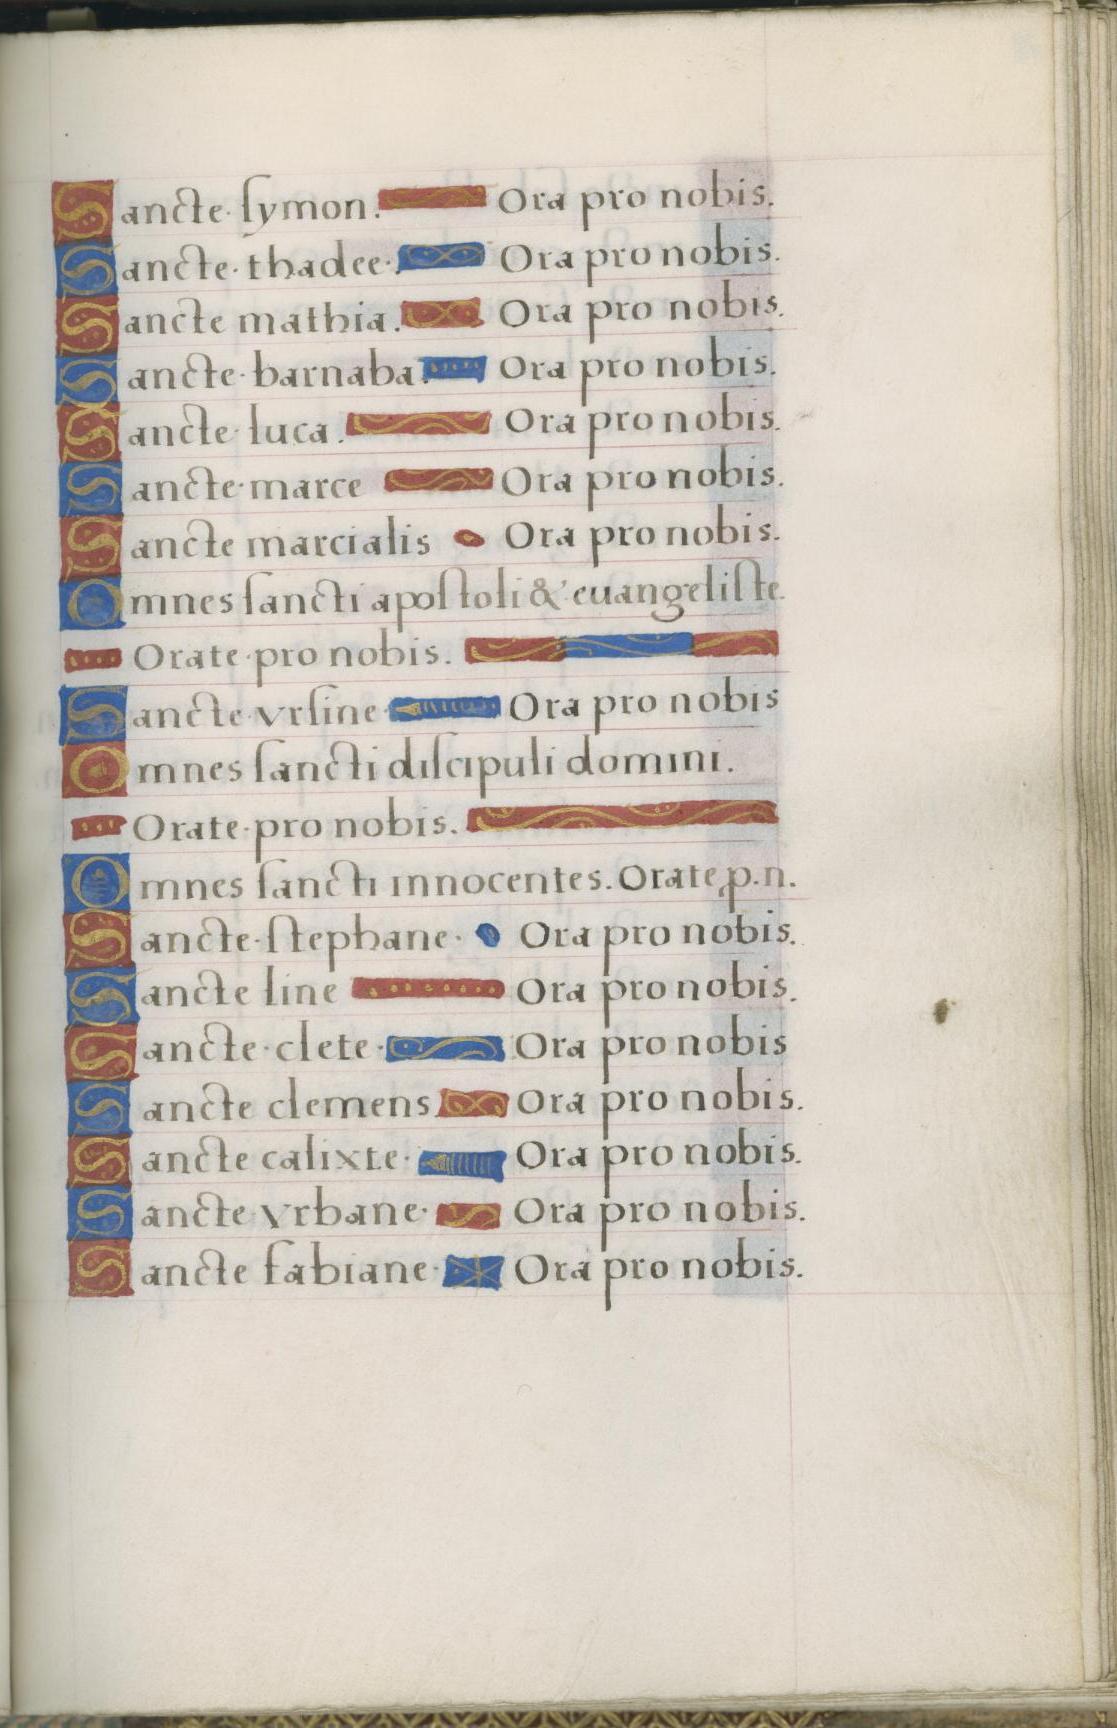 Sancte· ſymon. Ora pro nobis.
Sancte· thadee·. Ora pro nobis.
Sancte mathia. Ora pro nobis.
Sancte· barnaba. Ora pro nobis.
Sancte· luca. Ora pro nobis.
Sancte· marce Ora pro nobis.
Sancte marcialis Ora pro nobis.
Omnes ſancti apoſtoli & euangeliſte.
Orate· pro nobis.
Sancte vrſine· Ora pro nobis
Omnes ſancti diſcipuli domini.
Orate· pro nobis.
Omnes ſancti innocentes. Orate p. n.
Sancte· ſtephane· Ora pro nobis.
Sancte line Ora pro nobis.
Sancte· clete· Ora pro nobis
Sancte clemens. Ora pro nobis.
Sancte calixte· Ora pro nobis.
Sancte vrbane· Ora pro nobis.
Sancte fabiane· Ora pro nobis.